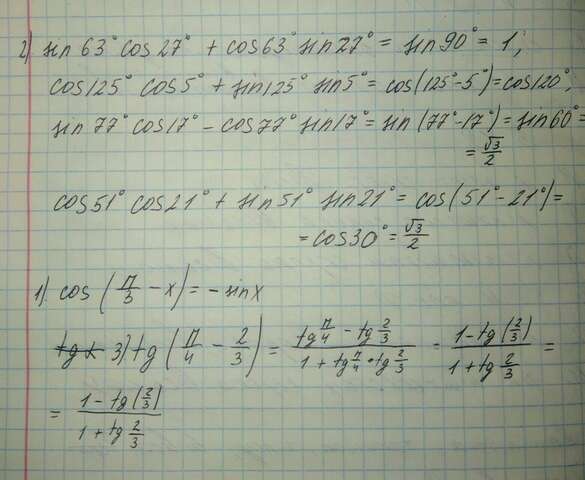 2) sin 63° cos 27° + cos 63° sin 27° = sin 90° = 1;
cos 125° cos 5° + sin 125° sin 5° = cos(125° - 5°) = cos 120°;
sin 77° cos 17° - cos 77° sin 17° = sin(77° - 17°) = sin 60° =
= √3/2
cos 51° cos 21° + sin 51° sin 21° = cos(51° - 21°) =
= cos 30° = √3/2
1) cos (π/3 - x) = - sin x
3) tg (π/4 - 2/3) = (tg π/4 - tg 2/3)/(1 + tg π/4 · tg 2/3) = (1 - tg (2/3))/(1 + tg 2/3) =
= (1 - tg (2/3))/(1 + tg 2/3)